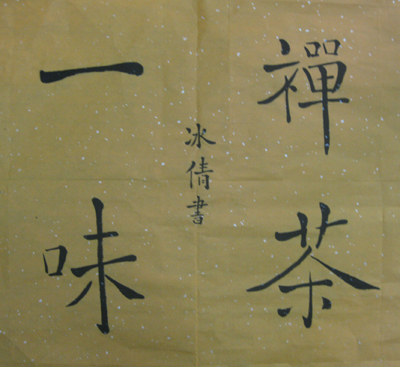 禪茶
一味
冰倩書